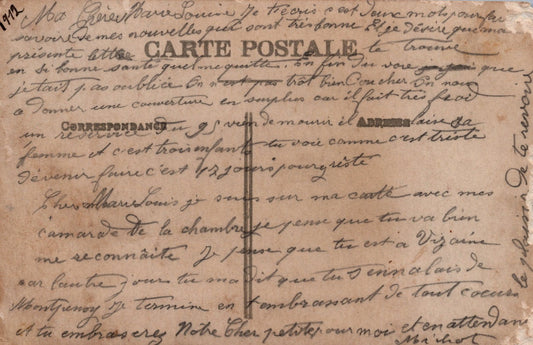 1912
Ma chère Marie Louise Je t'écris c'est deux mots pour te
savoire de mes nouvelles qui sont très bonne Et je désire que ma
présente lettre te trouve
CARTE POSTALE
en si bonne santé quelle me quitte. En fin du voie que
je tais pas oublié On n'est pas trot bien Coucher On nous
a donner une couverture en suplus car il fait très froid
CORRESPONDANCE
ADRESSE
un réserviste du 95 vien de mourir il laire sa
femme et c'est trois enfants tu voie comme c'est triste
d'evenir faire c'est 17 jours pour y reste
Cher Marie Louis je suis sur ma carte avec mes
camarade de la chambre je pense que tu va bien
me reconnâite Je pense que tu est a Vizaine
car l'autre jour tu ma dit que tu t'ennalais de
Montpensoy Je termine en t'embrassant de tout coeur
et tu embrasserez Notre Cher petite pour moi et en attendant
le plaisir de te revoir
Michot